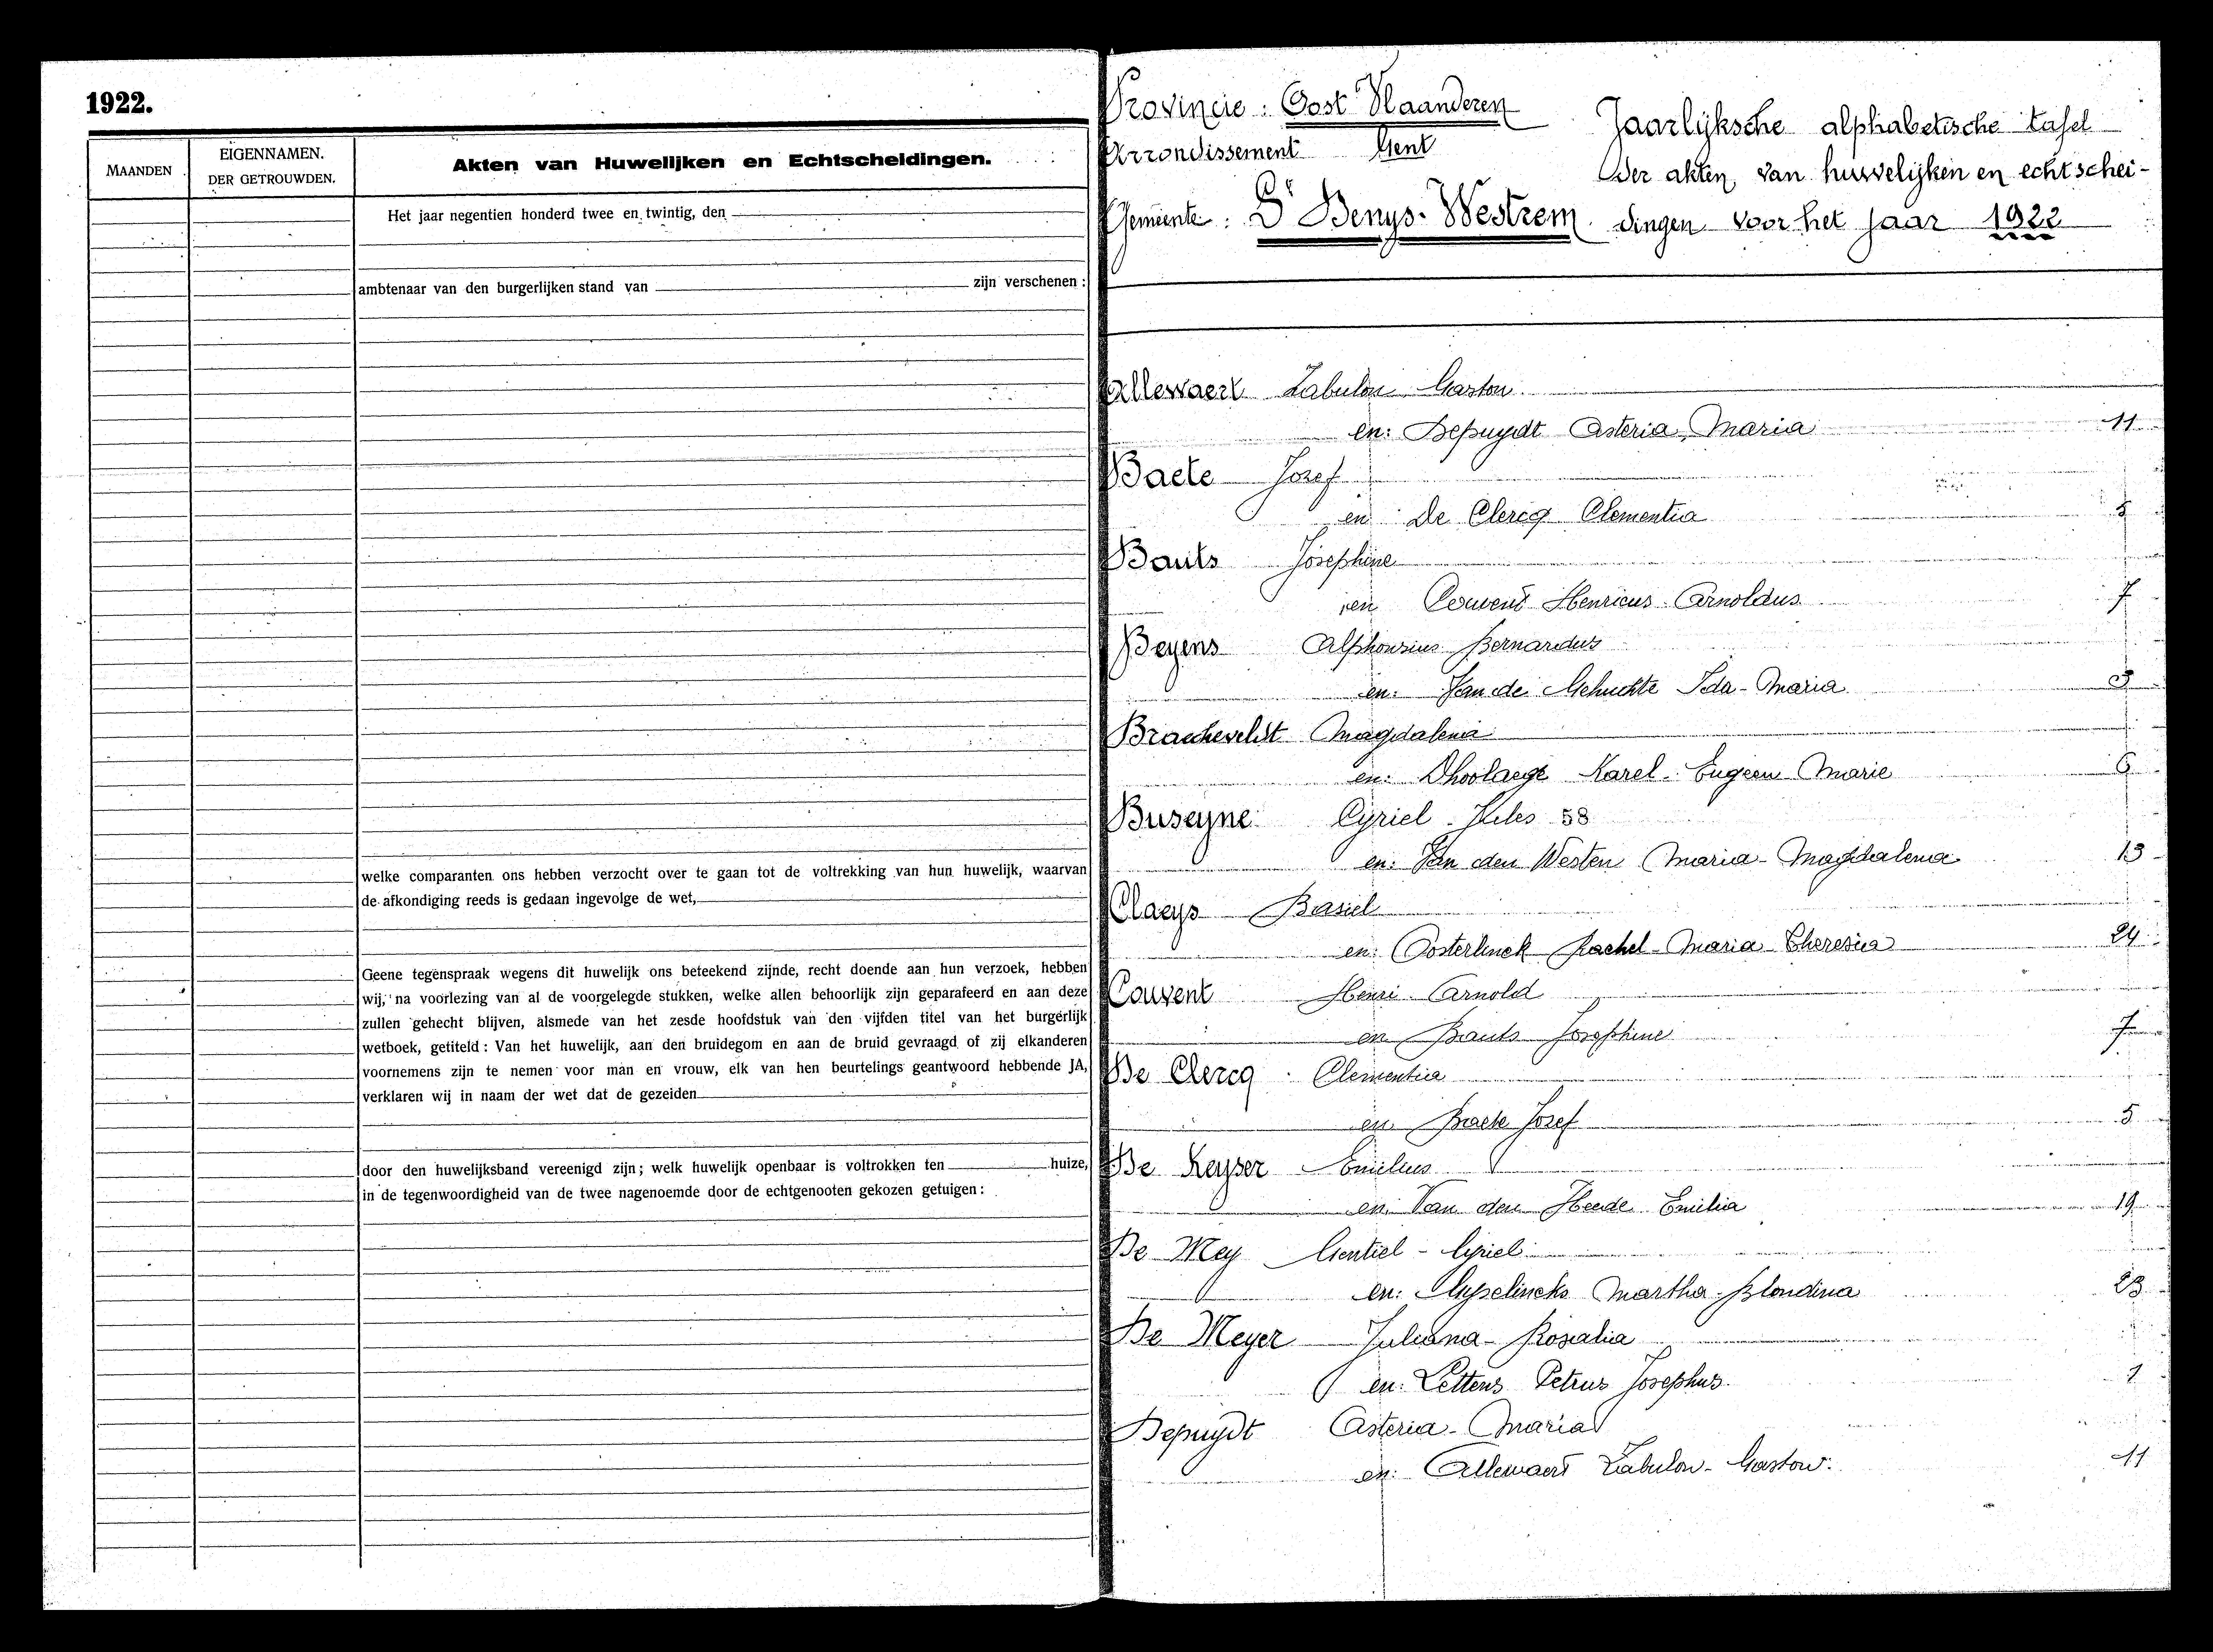 1922.
MAANDEN
EIGENNAMEN.
DER GETROUWDEN.
Akten van Huwelijken en Echtscheidingen.
Het jaar negentien honderd twee en twintig, den
ambtenaar van den burgerlijken stand van zijn verschenen :
welke comparanten ons hebben verzocht over te gaan tot de voltrekking van hun huwelijk, waarvan
de afkondiging reeds is gedaan ingevolge de wet,
Geene tegenspraak wegens dit huwelijk ons beteekend zijnde, recht doende aan hun verzoek, hebben
wij, na voorlezing van al de voorgelegde stukken, welke allen behoorlijk zijn geparafeerd en aan deze
zullen gehecht blijven, alsmede van het zesde hoofdstuk van den vijfden titel van het burgerlijk
wetboek, getiteld : Van het huwelijk, aan den bruidegom en aan de bruid gevraagd of zij elkanderen
voornemens zijn te nemen voor man en vrouw, elk van hen beurtelings geantwoord hebbende JA,
verklaren wij in naam der wet dat de gezeiden
door den huwelijksband vereenigd zijn; welk huwelijk openbaar is voltrokken ten huize,
in de tegenwoordigheid van de twee nagenoemde door de echtgenooten gekozen getuigen :
Provincie : Oost Vlaanderen
Arrondissement Gent
Gemeente : St Denys-Westrem
Jaarlijksche alphabetische tafel
der akten van huwelijken en echtschei-
dingen voor het jaar 1922
Allewaert Zabulon Gaston
en: Depuydt Asteria Maria 11
Baete Jozef
en De Clercq Clementia 5
Bauts Josephine
en Couvent Henricus Arnoldus 7
Beyens Alphonsius Bernardus
en: Van de Gehuchte Ida-Maria 3
Braeckevelt Magdalena
en: Dhoolaege Karel-Eugeen Marie 6
Buseyne Cyriel-Jules 58
en: Van den Westen Maria-Magdalena 13
Claeys Basiel
en: Oosterlinck Rachel-Maria-Theresia 24
Couvent Henri Arnold
en Bauts Josephine 7
De Clercq Clementia
en Baete Jozef 5
De Keyser Emilius
en: Van den Heede Emilia 19
De Mey Gentiel-Cyriel
en: Martha-Blondina 23
De Meyer Juliana-Rosalia
en: Lettens Petrus Josephus. 1
Depuydt Asteria-Maria
en: Allewaert Zabulon-Gaston. 11